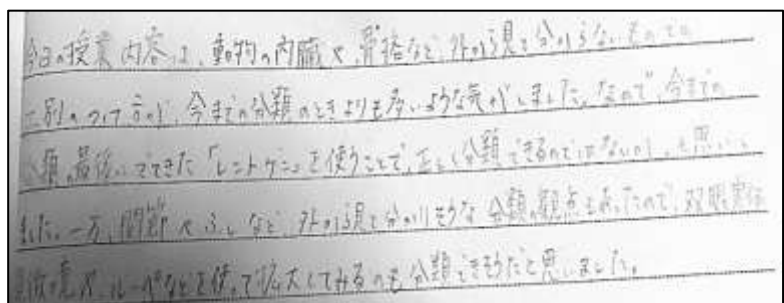 今日の授業内容は、動物の内臓や、骨格など、外から見て分からないものでの
区別のつけ方が、今までの分類のときよりも多いような気がしました。なので、今までの
分類の最後にでてきた「レントゲン」を使うことで、正しく分類できるのではないか、と思い
ました。一方、関節やふしなど、外から見て分かりそうな分類の観点もあったので、双眼実体
顕微鏡や、ルーペなどを使って拡大してみるのも分類できそうだと思いました。